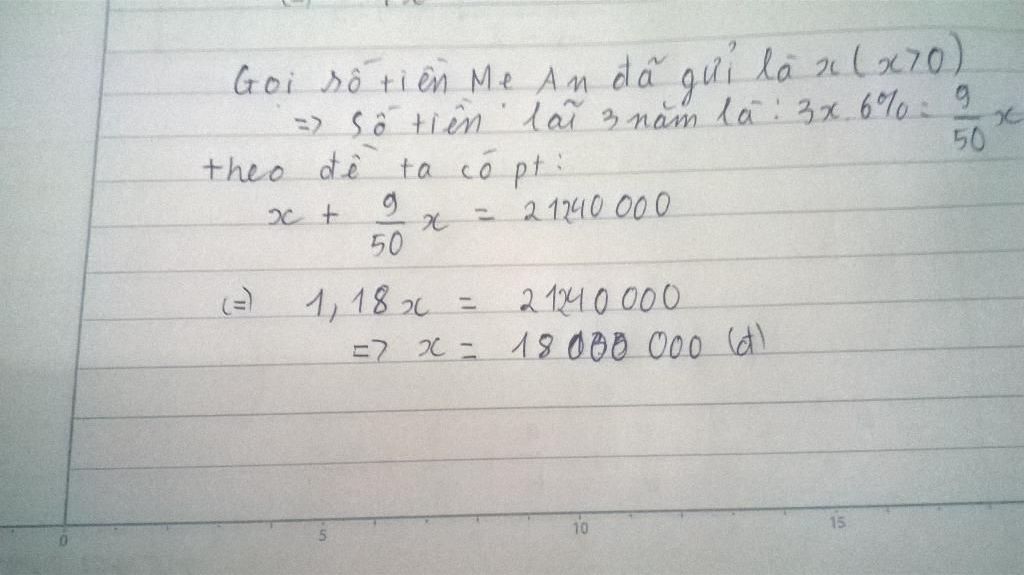 Gọi số tiền Mẹ An đã gửi là x (x>0)
=> Số tiền lãi 3 năm là: 3x.6% = 9/50 x
theo đề ta có pt:
x + 9/50 x = 21240 000
(=) 1,18x = 21240 000
=> x = 18 000 000 (đ)
0 5 10 15